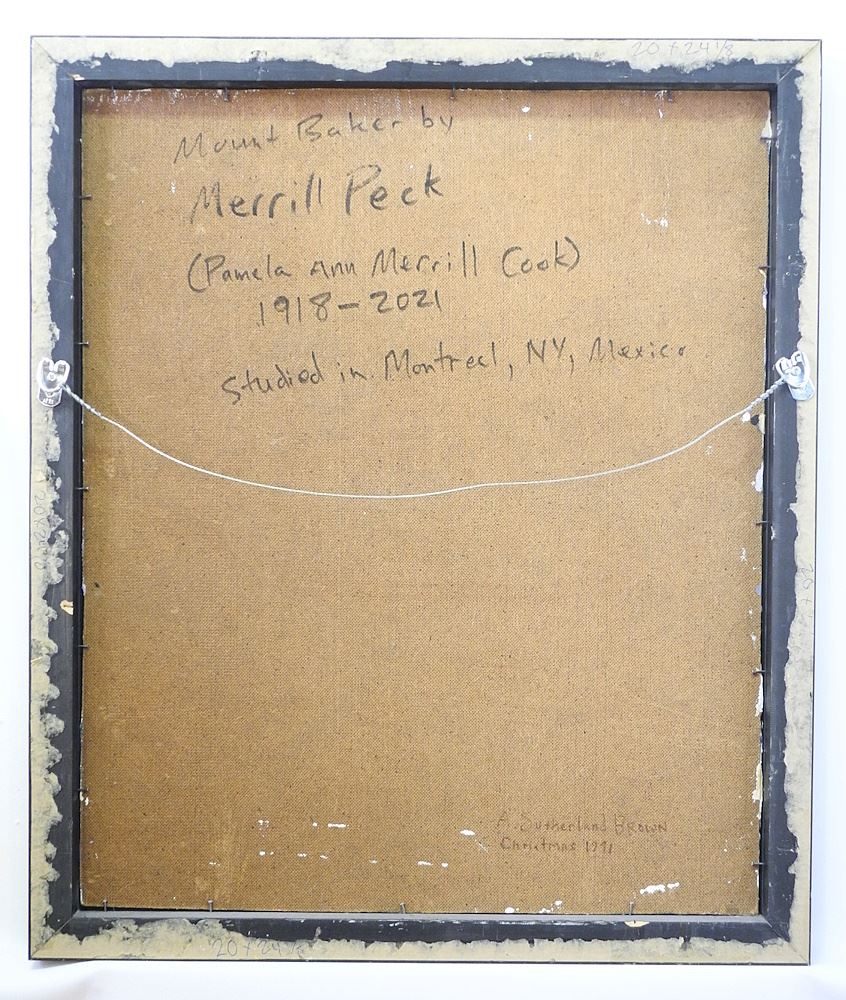 20 x 24 1/8
Mount Baker by
Merrill Peck
(Pamela Ann Merrill Cook)
1918-2021
Studied in Montreal, NY, Mexico
20 x 24 1/8
20 x
A. Sutherland BROWN
Christmas 1991
20 x 24 1/8